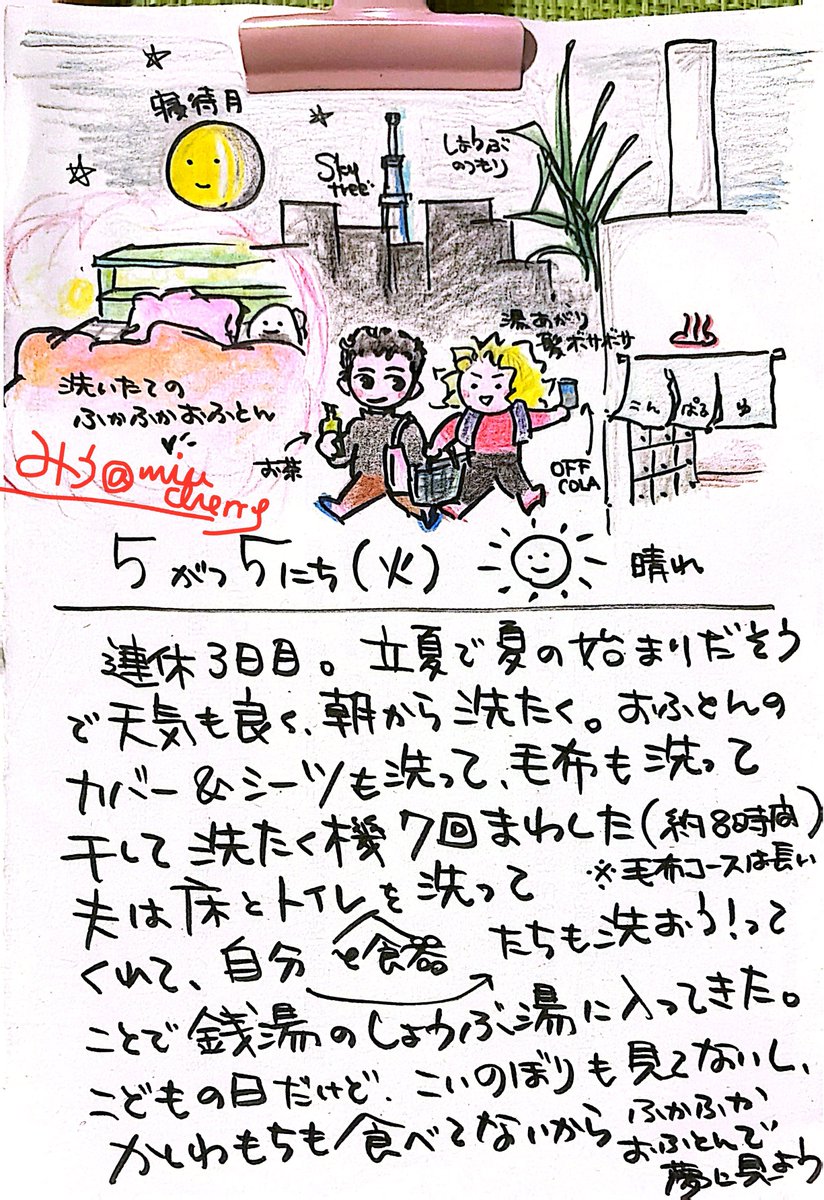 寝待月
Sky
tree
しょうぶ
のつもり
湯あがり
髪ボサボサ
こん ぱる ゆ
洗いたての
ふかふかおふとん
お茶
OFF
COLA
みう@miu
cherry
5がつ5にち(火) 晴れ
連休3日目。立夏で夏の始まりだそう
で天気も良く、朝から洗たく。おふとんの
カバー&シーツも洗って、毛布も洗って
干して洗たく機7回まわした(約8時間)
※毛布コースは長い
夫は床とトイレを洗って
くれて、自分と食器たちも洗おう!って
ことで銭湯のしょうぶ湯に入ってきた。
こどもの日だけど、こいのぼりも見てないし、
かしわもちも食べてないからふかふか
おふとんで
夢に見よう